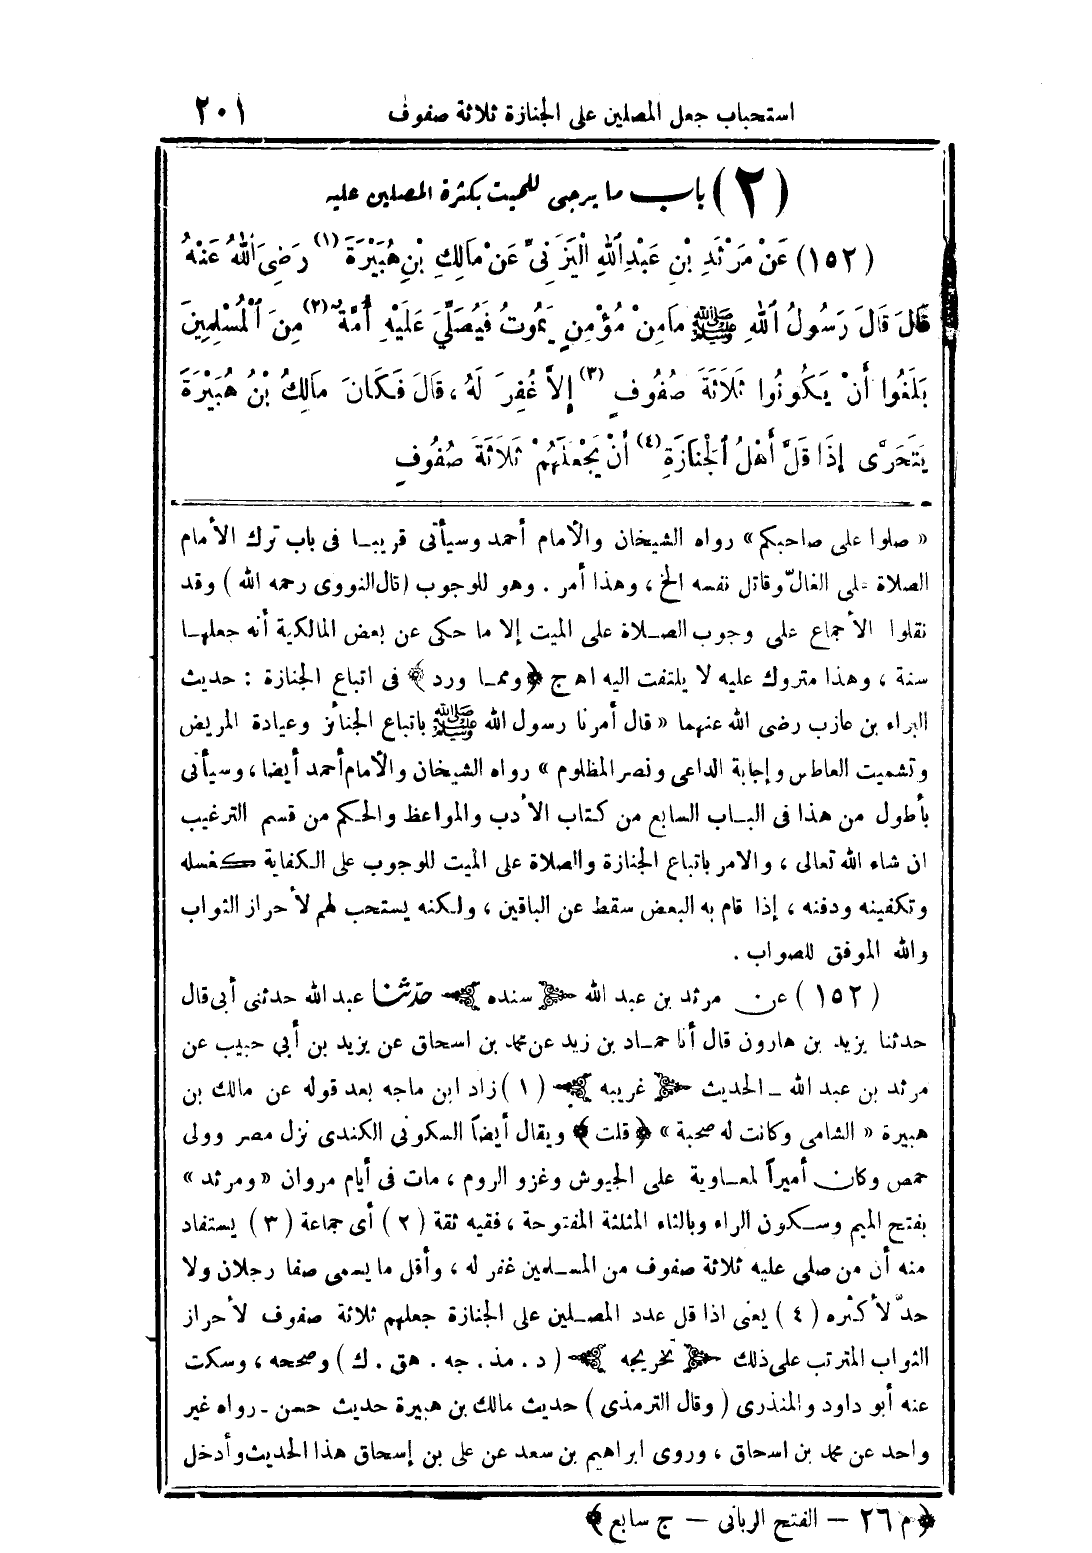 استحباب جعل المصلين على الجنازة ثلاثة صفوف ٢٠١
(٢) باب ما يرجى للميت بكثرة المصلين عليه
(١٥٢) عَنْ مَرْثَدِ بْنِ عَبْدِ اللهِ الْيَزَنِىِّ عَنْ مَالِكِ بْنِ هُبَيْرَةَ (١) رَضِىَ اللهُ عَنْهُ
قَالَ قَالَ رَسُولُ اللهِ ﷺ مَا مِنْ مُؤْمِنٍ يَمُوتُ فَيُصَلِّيَ عَلَيْهِ أُمَّةٌ (٢) مِنَ الْمُسْلِمِينَ
بَلَغُوا أَنْ يَكُونُوا ثَلَاثَةَ صُفُوفٍ (٣) إِلاَّ غُفِرَ لَهُ ، قَالَ فَكَانَ مَالِكُ بْنُ هُبَيْرَةَ
يَتَحَرَّى إِذَا قَلَّ أَهْلُ الْجَنَازَةِ (٤) أَنْ يَجْعَلَهُمْ ثَلَاثَةَ صُفُوفٍ
« صلوا على صاحبكم » رواه الشيخان والأمام أحمد وسيأتى قريبا فى باب ترك الأمام
الصلاة على الغالّ وقاتل نفسه الخ ، وهذا أمر . وهو للوجوب (قال النووى رحمه الله ) وقد
نقلوا الأجماع على وجوب الصلاة على الميت إلا ما حكى عن بعض المالكية أنه جعلها
سنة ، وهذا متروك عليه لا يلتفت اليه اهـ ج ﴿ومما ورد﴾ فى اتباع الجنازة : حديث
البراء بن عازب رضى الله عنهما « قال أمرنا رسول الله ﷺ باتباع الجنائز وعيادة المريض
وتشميت العاطس وإجابة الداعى ونصر المظلوم » رواه الشيخان والأمام أحمد أيضا ، وسيأتى
بأطول من هذا فى الباب السابع من كتاب الأدب والمواعظ والحكم من قسم الترغيب
ان شاء الله تعالى ، والامر باتباع الجنازة والصلاة على الميت للوجوب على الكفاية كغسله
وتكفينه ودفنه ، إذا قام به البعض سقط عن الباقين ، ولكنه يستحب لهم لأحراز الثواب
والله الموفق للصواب .
(١٥٢) عن مرثد بن عبد الله ﴿ سنده ﴾ حدّثنا عبد الله حدثنى أبى قال
حدثنا يزيد بن هارون قال أنا حماد بن زيد عن محمد بن اسحاق عن يزيد بن أبي حبيب عن
مرثد بن عبد الله ـ الحديث ﴿ غريبه ﴾ (١) زاد ابن ماجه بعد قوله عن مالك بن
هبيرة « الشامى وكانت له صحبة » ﴿ قلت ﴾ ويقال أيضاً السكونى الكندى نزل مصر وولى
حمص وكان أميراً لمعاوية على الجيوش وغزو الروم ، مات فى أيام مروان « ومرثد »
بفتح الميم وسكون الراء وبالثاء المثلثة المفتوحة ، فقيه ثقة (٢) أى جماعة (٣) يستفاد
منه أن من صلى عليه ثلاثة صفوف من المسلمين غفر له ، وأقل ما يسمى صفا رجلان ولا
حدّ لأكثره (٤) يعنى اذا قل عدد المصلين على الجنازة جعلهم ثلاثة صفوف لأحراز
الثواب المترتب على ذلك ﴿ تخريجه ﴾ ( د . مذ . جه . هق . ك ) وصححه ، وسكت
عنه أبو داود والمنذرى ( وقال الترمذى ) حديث مالك بن هبيرة حديث حسن ـ رواه غير
واحد عن محمد بن اسحاق ، وروى ابراهيم بن سعد عن على بن إسحاق هذا الحديث وأدخل
﴿ م ٢٦ — الفتح الربانى — ج سابع ﴾